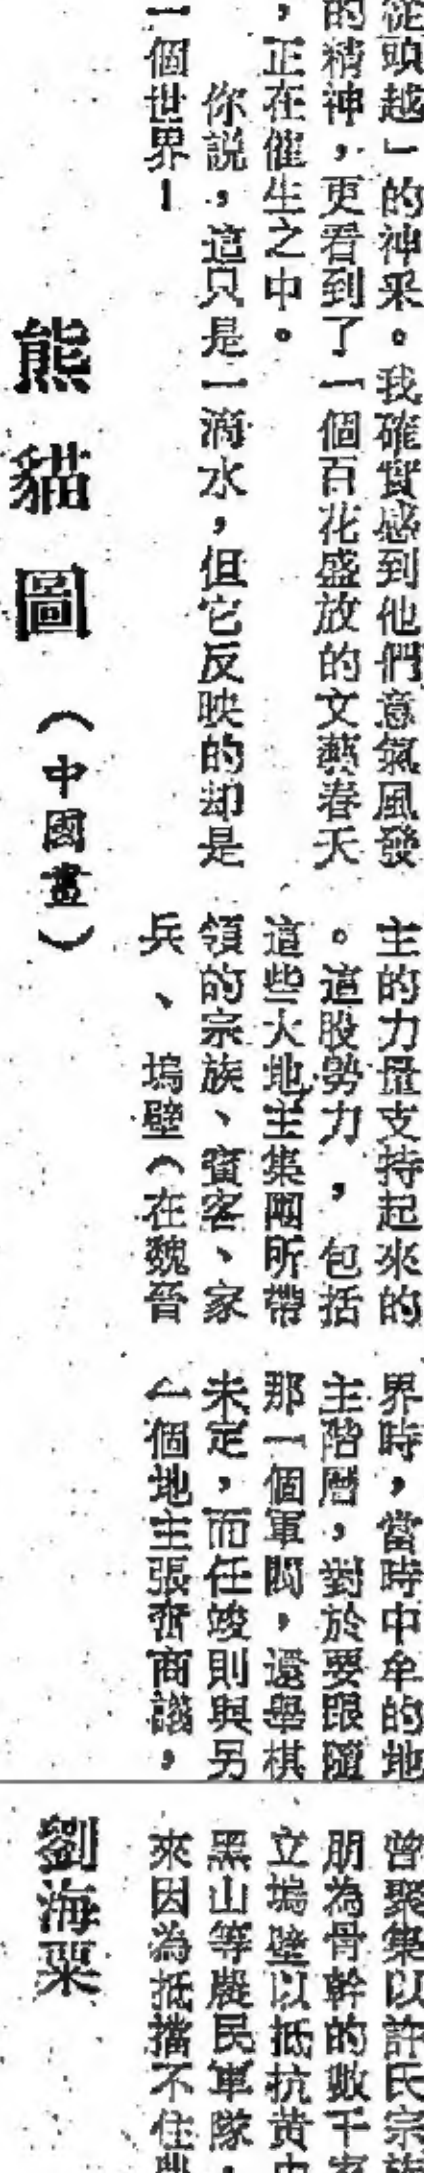 從頭越」的神采。我確實感到他們意氣風發
的精神，更看到了一個百花盛放的文藝春天
，正在催生之中。
你説，這只是一滴水，但它反映的却是
一個世界！
主的力量支持起來的
。這股勢力，包括
這些大地主集團所帶
領的宗族、賓客、家
兵、塢壁（在魏晉
界時，當時中牟的地
主階層，對於要跟隨
那一個軍閥，還舉棋
未定，而任竣則與另
一個地主張奮商議，
曾聚集以許氏宗族
朋為骨幹的數千家
立塢壁以抵抗黄巾
黑山等農民軍隊，
來因為抵擋不住
熊貓圖（中國畫）
劉海粟